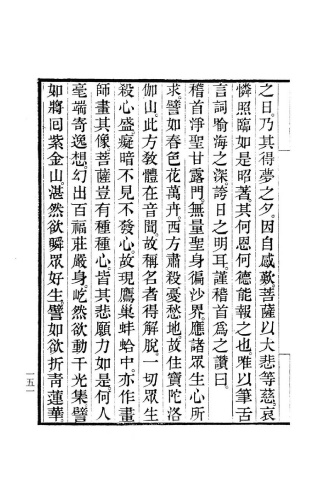 之日。乃其得夢之夕。因自感歎菩薩以大悲等慈。哀
憐照臨如是昭著。其何恩何德能報之也。唯以筆舌
言詞。喻海之深。誇日之明耳。謹稽首為之讚曰。
稽首淨聖甘露門。無量聖身徧沙界。應諸眾生心所
求。譬如春色花萬卉。西方肅殺憂愁地。故住寶陀洛
伽山。此方教體在音聞。故稱名者得解脫。一切眾生
殺心盛。癡暗不見不發心。故現鷹巢蚌蛤中。亦作畫
師畫其像。菩薩豈有種種心。皆其悲願力如是。何人
毫端寄逸想。幻出百福莊嚴身。屹然欲動千光集。譬
如將回紫金山。湛然欲瞬眾好生。譬如欲折青蓮華。
一五